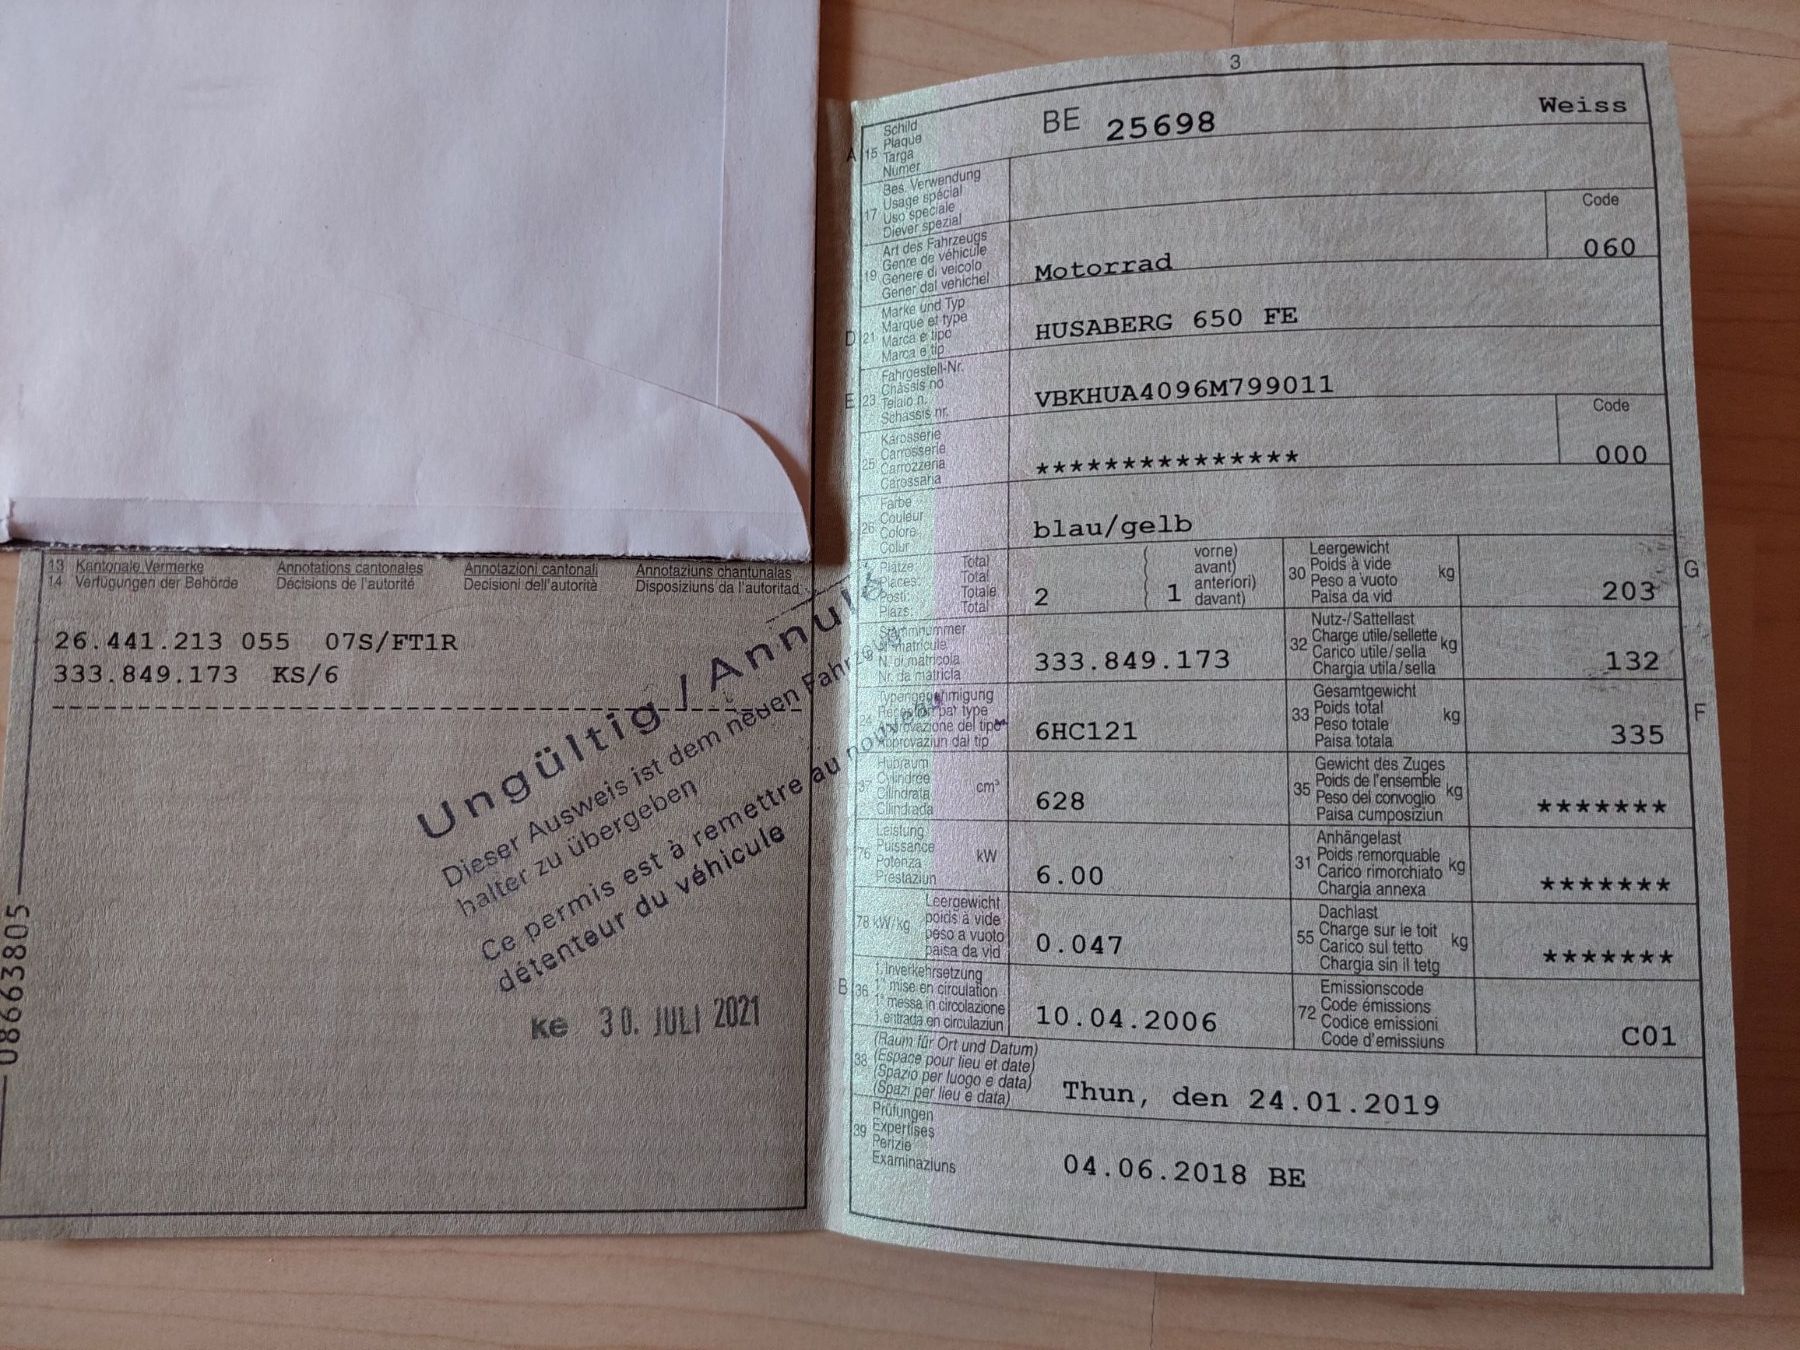 13 Kantonale Vermerke Annotations cantonales Annotazioni cantonali Annotaziuns chantunalas
14 Verfügungen der Behörde Décisions de l'autorité Decisioni dell'autorità Disposiziuns da l'autoritad
26.441.213 055 07S/FT1R
333.849.173 KS/6
Ungültig / Annulé
Dieser Ausweis ist dem neuen Fahrzeug
halter zu übergeben
Ce permis est à remettre au nouveau
détenteur du véhicule
ke 30. JULI 2021
08663805
3
A 15 Schild
Plaque
Targa
Numer
BE 25698 Weiss
17 Bes. Verwendung
Usage spécial
Uso speciale
Diever spezial
19 Art des Fahrzeugs
Genre de véhicule
Genere di veicolo
Gener dal vehichel
Motorrad
Code
060
D 21 Marke und Typ
Marque et type
Marca e tipo
Marca e tip
HUSABERG 650 FE
E 23 Fahrgestell-Nr.
Châssis no
Telaio n.
Schassis nr.
VBKHUA4096M799011
25 Karosserie
Carrosserie
Carrozzeria
Carossaria
***************
Code
000
26 Farbe
Couleur
Colore
Colur
blau/gelb
Plätze Total
Places: Total
Posti: Totale
Plazs: Total
2
( vorne)
avant)
anteriori)
( 1 davant)
30 Leergewicht
Poids à vide
Peso a vuoto
Paisa da vid
kg
203
G
Stammnummer
matricule
N. di matricola
Nr. da matricla
333.849.173
32 Nutz-/Sattellast
Charge utile/sellette
Carico utile/sella
Chargia utila/sella
kg
132
24 Typengenehmigung
Réception par type
Approvazione del tipo
Approvaziun dal tip
6HC121
33 Gesamtgewicht
Poids total
Peso totale
Paisa totala
kg
335
F
37 Hubraum
Cylindrée
Cilindrata
Cilindrada
cm³
628
35 Gewicht des Zuges
Poids de l'ensemble
Peso del convoglio
Paisa cumposiziun
kg
*******
76 Leistung
Puissance
Potenza
Prestaziun
kW
6.00
31 Anhängelast
Poids remorquable
Carico rimorchiato
Chargia annexa
kg
*******
78 kW/kg Leergewicht
poids à vide
peso a vuoto
paisa da vid
0.047
55 Dachlast
Charge sur le toit
Carico sul tetto
Chargia sin il tetg
kg
*******
B 36 1. Inverkehrsetzung
1re mise en circulation
1a messa in circolazione
1. entrada en circulaziun
10.04.2006
72 Emissionscode
Code émissions
Codice emissioni
Code d'emissiuns
C01
38 (Raum für Ort und Datum)
(Espace pour lieu et date)
(Spazio per luogo e data)
(Spazi per lieu e data)
Thun, den 24.01.2019
39 Prüfungen
Expertises
Perizie
Examinaziuns
04.06.2018 BE